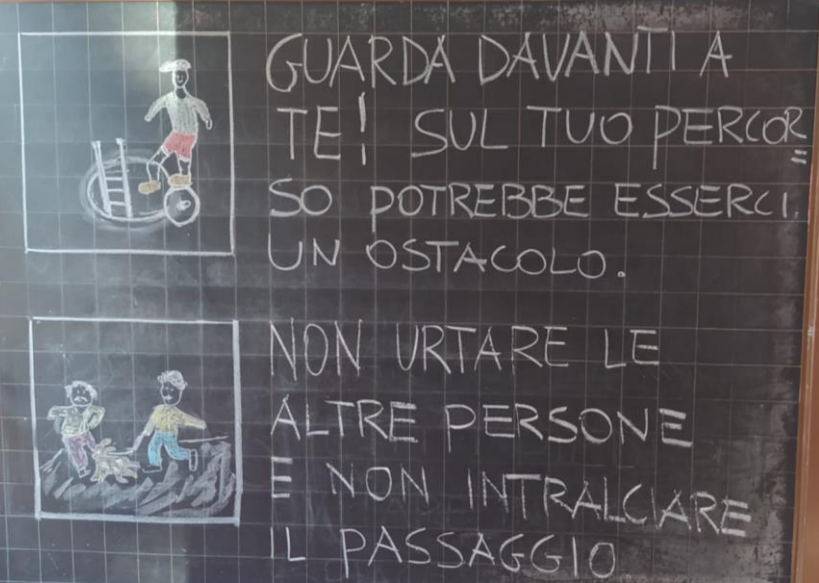 GUARDA DAVANTI A
TE! SUL TUO PERCOR=
SO POTREBBE ESSERCI
UN OSTACOLO.
NON URTARE LE
ALTRE PERSONE
E NON INTRALCIARE
IL PASSAGGIO